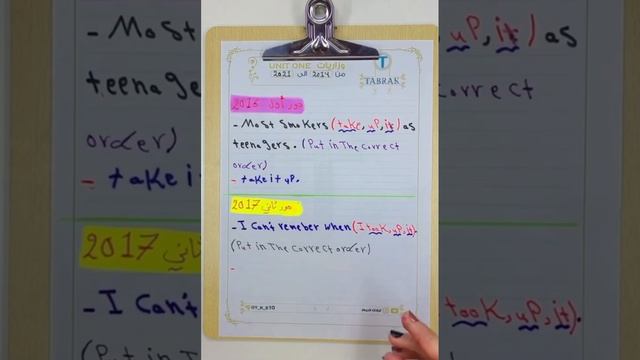 وزاريات UNIT ONE
من 2014 الى 2021
T
TABRAK
دور أول 2016
- Most smokers (take, up, it) as
teenagers. (Put in The correct
order)
- take it up.
دور ثاني 2017
- I can't remeber when (I took, up, it).
(Put in The correct order)
-